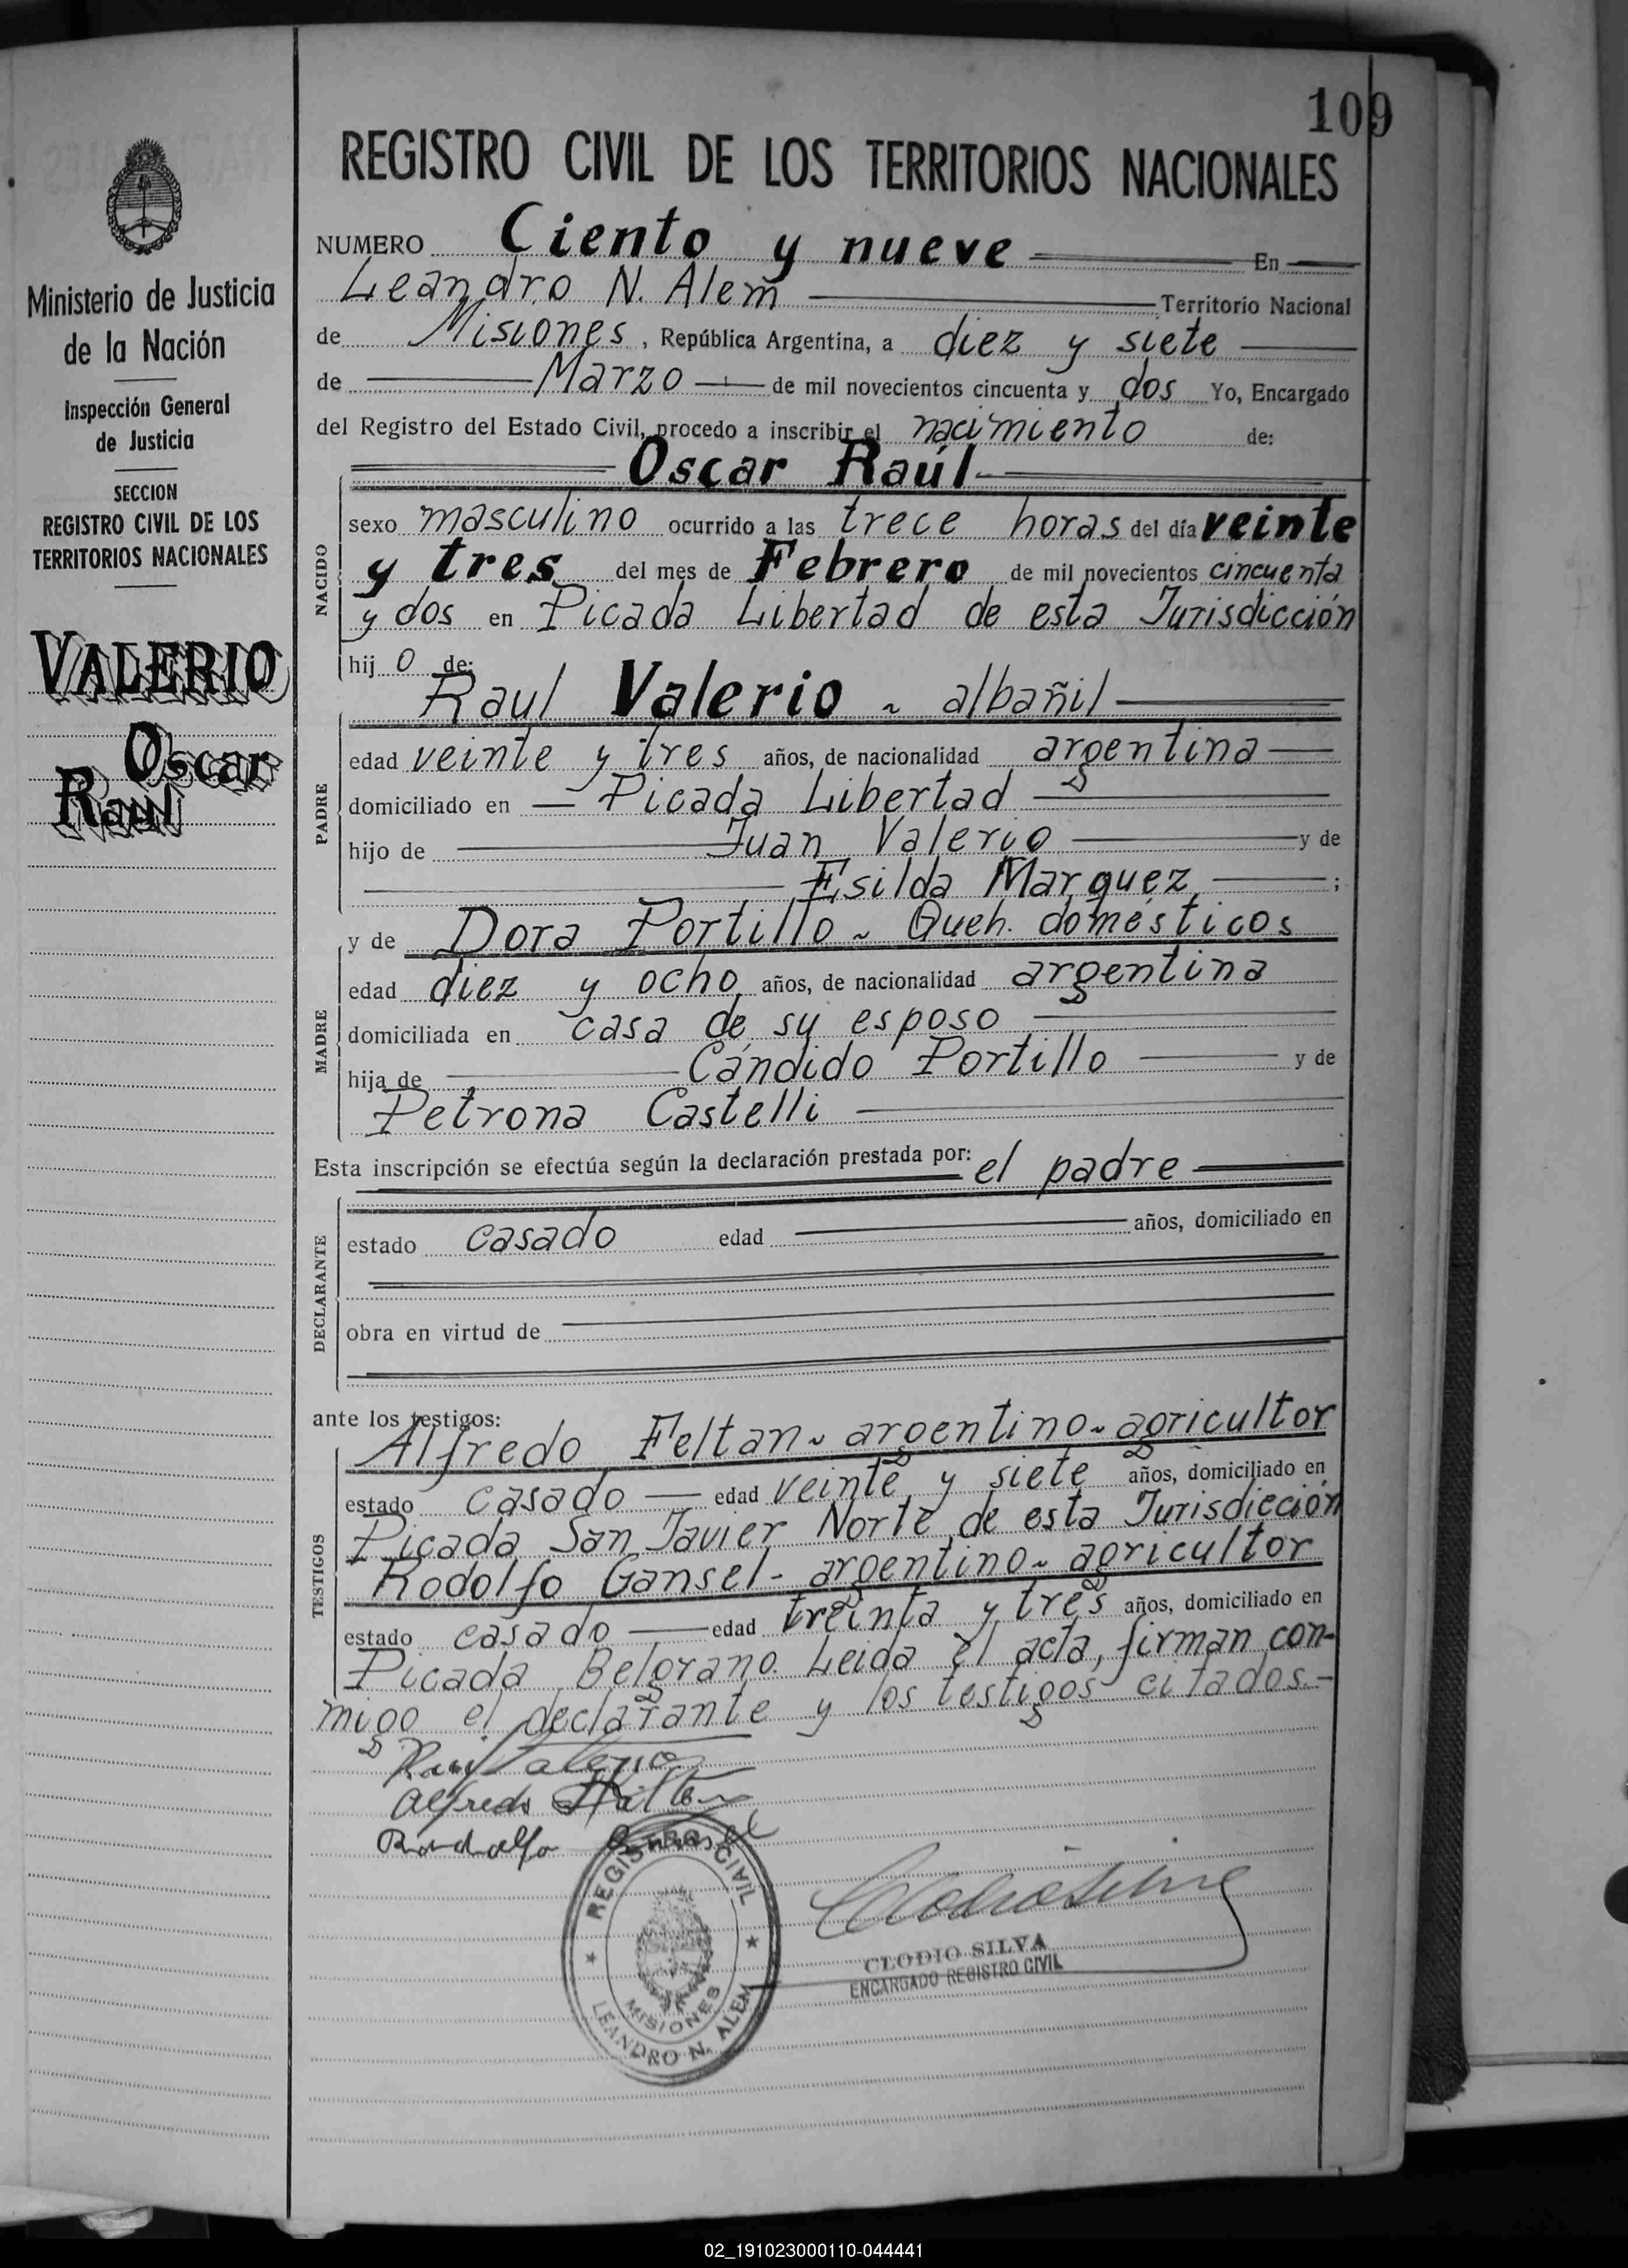 109
REGISTRO CIVIL DE LOS TERRITORIOS NACIONALES
Ministerio de Justicia
de la Nación
Inspección General
de Justicia
SECCION
REGISTRO CIVIL DE LOS
TERRITORIOS NACIONALES
VALERIO
Oscar
Raul
NUMERO Ciento y nueve En
Leandro N. Alem Territorio Nacional
de Misiones, República Argentina, a diez y siete
de Marzo de mil novecientos cincuenta y dos Yo, Encargado
del Registro del Estado Civil, procedo a inscribir el nacimiento de:
Oscar Raúl
NACIDO
sexo masculino ocurrido a las trece horas del día veinte
y tres del mes de Febrero de mil novecientos cincuenta
y dos en Picada Libertad de esta Jurisdicción
hij o de:
Raul Valerio - albañil
PADRE
edad veinte y tres años, de nacionalidad argentina
domiciliado en Picada Libertad
hijo de Juan Valerio y de
Esilda Marquez ;
y de Dora Portillo - Queh. domésticos
MADRE
edad diez y ocho años, de nacionalidad argentina
domiciliada en casa de su esposo
hija de Cándido Portillo y de
Petrona Castelli
Esta inscripción se efectúa según la declaración prestada por: el padre
DECLARANTE
estado casado edad años, domiciliado en
obra en virtud de
ante los testigos:
Alfredo Feltan - argentino - agricultor
TESTIGOS
estado casado edad veinte y siete años, domiciliado en
Picada San Javier Norte de esta Jurisdicción
Rodolfo Gansel - argentino - agricultor
estado casado edad treinta y tres años, domiciliado en
Picada Belgrano. Leida el acta, firman con-
migo el declarante y los testigos citados.-
Raul Valerio
Alfredo Feltan
Rodolfo Gansel
REGISTRO CIVIL
MISIONES
LEANDRO N. ALEM
Clodio Silva
CLODIO SILVA
ENCARGADO REGISTRO CIVIL
02_191023000110-044441